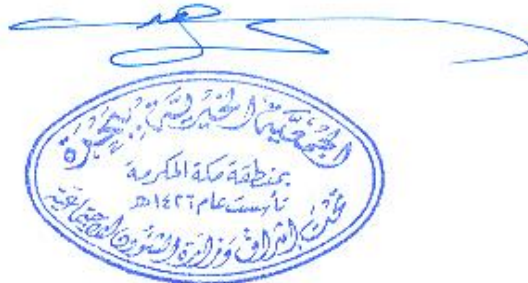 الجمعية الخيرية
بمنطقة مكة المكرمة
تأسست عام ١٤٢٦هـ
تحت إشراف وزارة الشئون الاجتماعية